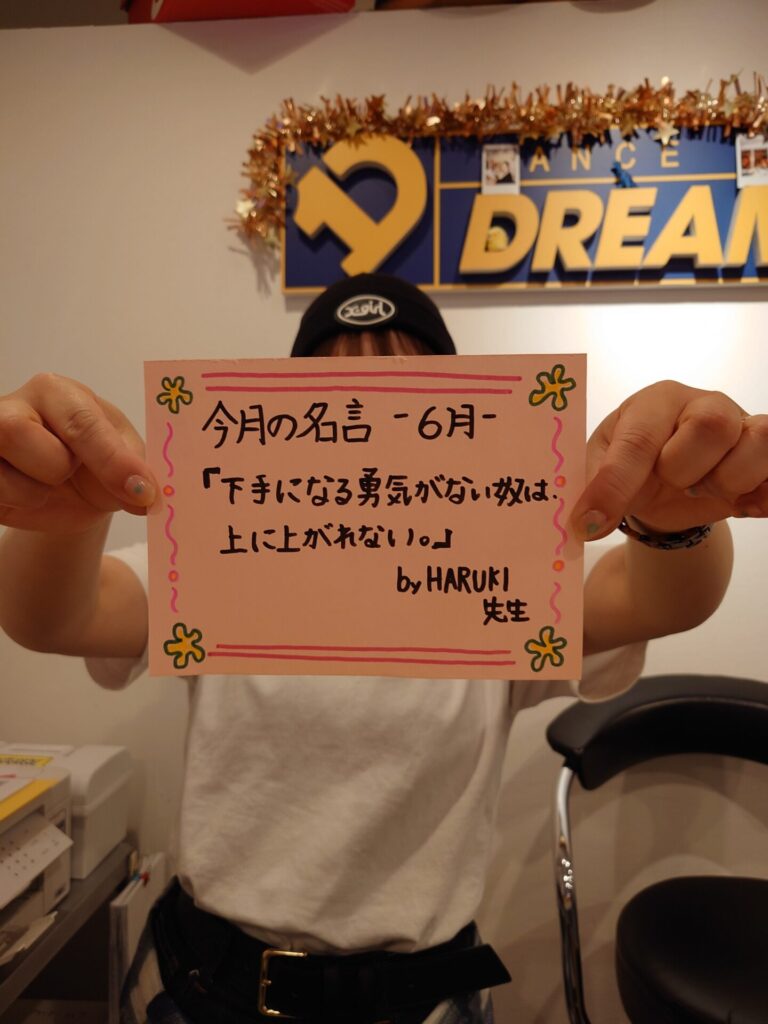 ANCE
DREAM
X-girl
今月の名言 -6月-
「下手になる勇気がない奴は、
上に上がれない。」
by HARUKI
先生